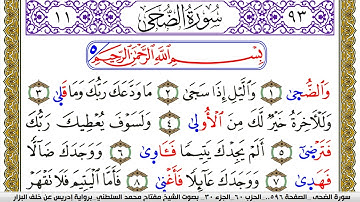 ٩٣ سُورَةُ الضُّحَىٰ ١١
بِسْمِ اللَّهِ الرَّحْمَٰنِ الرَّحِيمِ
وَالضُّحَىٰ ١ وَالَّيْلِ إِذَا سَجَىٰ ٢ مَا وَدَّعَكَ رَبُّكَ وَمَا قَلَىٰ ٣
وَلَلْآخِرَةُ خَيْرٌ لَّكَ مِنَ الْأُولَىٰ ٤ وَلَسَوْفَ يُعْطِيكَ رَبُّكَ
فَتَرْضَىٰ ٥ أَلَمْ يَجِدْكَ يَتِيمًا فَـَٔاوَىٰ ٦ وَوَجَدَكَ ضَالًّا
فَهَدَىٰ ٧ وَوَجَدَكَ عَآئِلًا فَأَغْنَىٰ ٨ فَأَمَّا الْيَتِيمَ فَلَا تَقْهَرْ
سورة الضحى الصفحة ٥٩٦.. الحزب ٦٠ الجزء ٣٠ بصوت الشيخ مفتاح محمد السلطني برواية إدريس عن خلف البزار